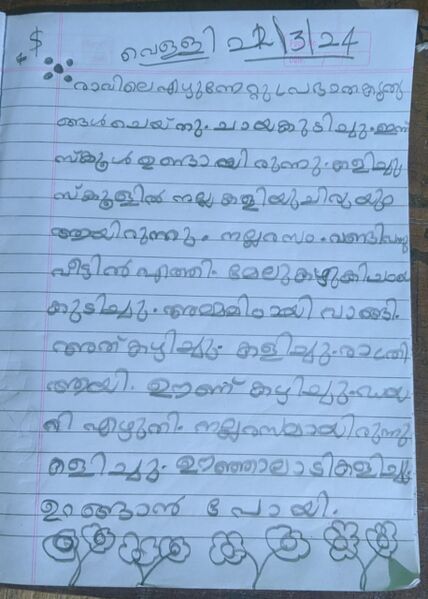 $
വെള്ളി 22/3/24
രാവിലെ എഴുന്നേറ്റു പ്രഭാതകൃത്യ
ങ്ങൾ ചെയ്തു. ചായ കുടിച്ചു. ഇന്ന്
സ്കൂൾ ഉണ്ടായിരുന്നു. കളിച്ചു
സ്കൂളിൽ നല്ല കളിയുചിരിയും
ആയിരുന്നു. നല്ല രസം. വണ്ടി വന്നു
വീട്ടിൽ എത്തി. മേലുകഴുകി ചായ
കുടിച്ചു. അമ്മ മിഠായി വാങ്ങി.
അത് കഴിച്ചു. കളിച്ചു. രാത്രി
ആയി. ഊണ് കഴിച്ചു. ഡയ
റി എഴുതി. നല്ല രസമായിരുന്നു
കളിച്ചു. ഊഞ്ഞാലാടി കളിച്ചു.
ഉറങ്ങാൻ പോയി.